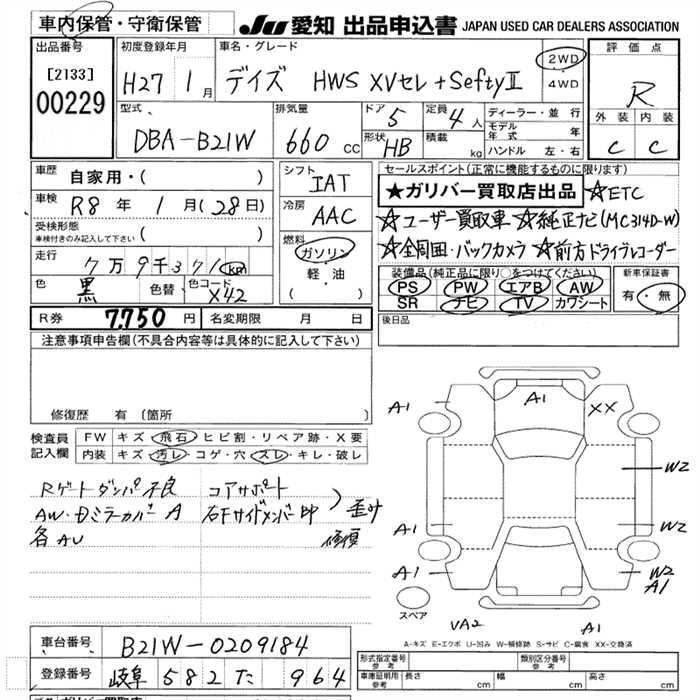 車内保管・守衛保管
JU 愛知 出品申込書 JAPAN USED CAR DEALERS ASSOCIATION
出品番号 [2133] 00229
初度登録年月 H27 1月
車名・グレード デイズ HWS XVセレ+SeftyⅡ 2WD 4WD
評価点 R
外装 内装 C C
型式 DBA-B21W
排気量 660 cc
ドア 5 定員 4人
形状 HB 積載 kg
ディーラー・並行
モデル年式 年
ハンドル 左・右
車歴 自家用・( )
車検 R8年 1月(28日)
受検形態
車検付きのみ記入して下さい ( )
走行 7万9千371km
色 黒 色替 色コード X42
シフト IAT
冷房 AAC
燃料 ガソリン・軽・油 ( )
セールスポイント(正常に機能するものに限ります)
★ガリバー買取店出品 ☆ETC
☆ユーザー買取車 ☆純正ナビ(MC314D-W)
☆全周囲・バックカメラ ☆前方ドライブレコーダー
装備品(純正品に限り○をつけてください)
PS PW エアB AW
SR ナビ TV カワシート
新車保証書 有・無
後日品
R券 7,750円 名変期限 月 日
注意事項申告欄(不具合内容等は具体的に記入して下さい)
修復歴 有(箇所 )
検査員記入欄
FW キズ・飛石・ヒビ割・リペア跡・X要
内装 キズ・汚レ・コゲ・穴・スレ・キレ・破レ
Rゲートダンパ不良 コアサポート
AW・Dミラーカバー A 右Fサイドメンバ 凹 歪み
各AU 修復
A1 A1 XX
W2
A1 W2
A1 W2 A1
スペア VA2 A1
A-キズ E-エクボ U-凹み W-補修跡 S-サビ C-腐食 XX-交換済
車台番号 B21W-0209184
登録番号 岐阜 582 た 964
形式指定番号 参考 類別区分番号 参考
車庫証明用 参考 長さ cm 幅 cm 高さ cm
ガリバー買取店